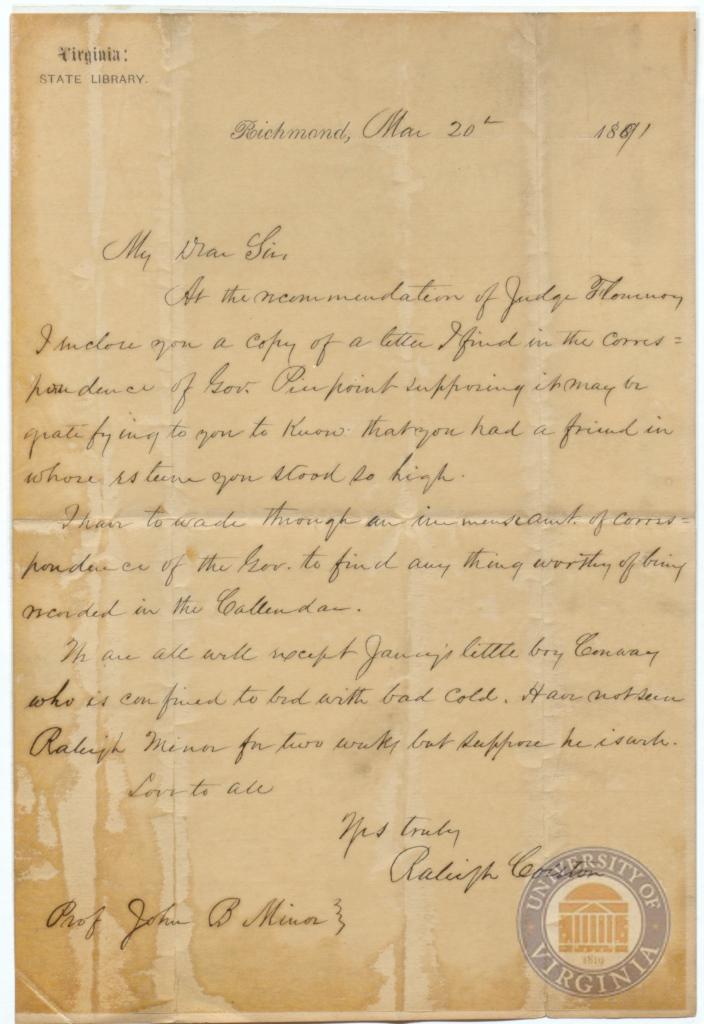 Virginia:
STATE LIBRARY.
Richmond, Mar 20th 1891
My Dear Sir,
At the recommendation of Judge Flournoy
I inclose you a copy of a letter I find in the corres=
pondence of Gov. Pierpoint supposing it may be
gratefying to you to know that you had a friend in
whose esteem you stood so high.
I have to wade through an immense amt. of corres=
pondence of the Gov. to find any thing worthy of being
recorded in the Callendar.
We are all well except Janey's little boy Conway
who is confined to bed with bad cold. Have not seen
Raleigh Minor for two weeks but suppose he is well.
Love to all
Yrs truly
Raleigh Colston
Prof John B Minor
UNIVERSITY OF
VIRGINIA
1819